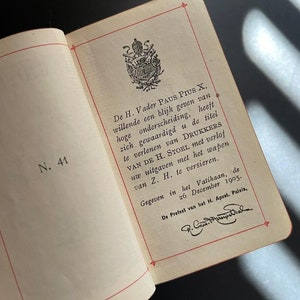 N. 41
De H. Vader PAUS PIUS X,
willende een blijk geven van
hoge onderscheiding, heeft
zich gewaardigd u de titel
te verlenen van DRUKKERS
VAN DE H. STOEL met verlof
uw uitgaven met het wapen
van Z. H. te versieren.
Gegeven in het Vatikaan, de
26 December 1905.
De Prefect van het H. Apost. Paleis,